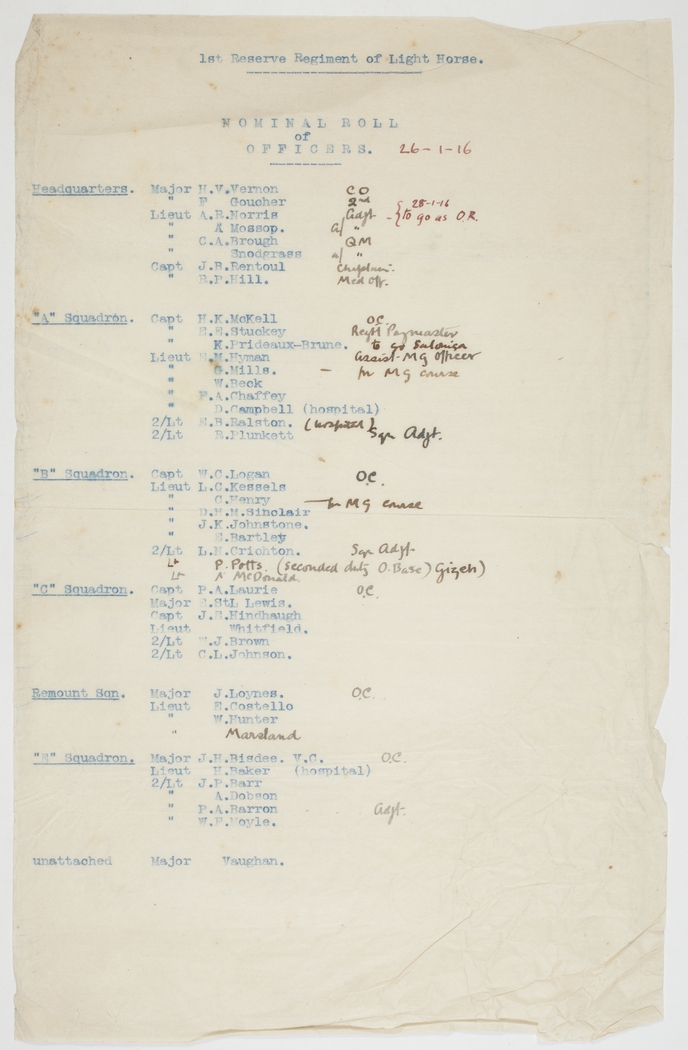 1st Reserve Regiment of Light Horse.
NOMINAL ROLL
of
OFFICERS. 26-1-16
Headquarters. Major H.V.Vernon CO
" F Goucher 2nd { 28-1-16
Lieut A.R.Norris Adjt - { to go as O.R.
" A Mossop. a/ "
" C.A.Brough QM
" Snodgrass a/ "
Capt J.B.Rentoul Chaplain.
" R.P.Hill. Med Off.
"A" Squadron. Capt H.K.McKell O.C.
" E.E.Stuckey Regtl Paymaster
" K.Prideaux-Brune. to go Salonica
Lieut E.M.Hyman Assist- MG Officer
" G.Mills. - for MG course
" W.Beck
" F.A.Chaffey
" D.Campbell (hospital)
2/Lt E.B.Ralston. (hospital)
2/Lt R.Plunkett Sqn Adjt.
"B" Squadron. Capt W.C.Logan O.C.
Lieut L.C.Kessels
" C.Henry - for MG course
" D.H.M.Sinclair
" J.K.Johnstone.
" E.Bartley
2/Lt L.N.Crichton. Sqn Adjt
Lt P. Potts. (seconded duty O. Base) Gizeh)
Lt N McDonald.
"C" Squadron. Capt P.A.Laurie O.C.
Major E.StL Lewis.
Capt J.S.Hindhaugh
Lieut Whitfield.
2/Lt W.J.Brown
2/Lt C.L.Johnson.
Remount Sqn. Major J.Loynes. O.C.
Lieut E.Costello
" W.Hunter
" Marsland
"E" Squadron. Major J.H.Bisdee. V.C. O.C.
Lieut H.Baker (hospital)
2/Lt J.P.Barr
" A.Dobson
" P.A.Barron Adjt.
" W.P.Moyle.
unattached Major Vaughan.